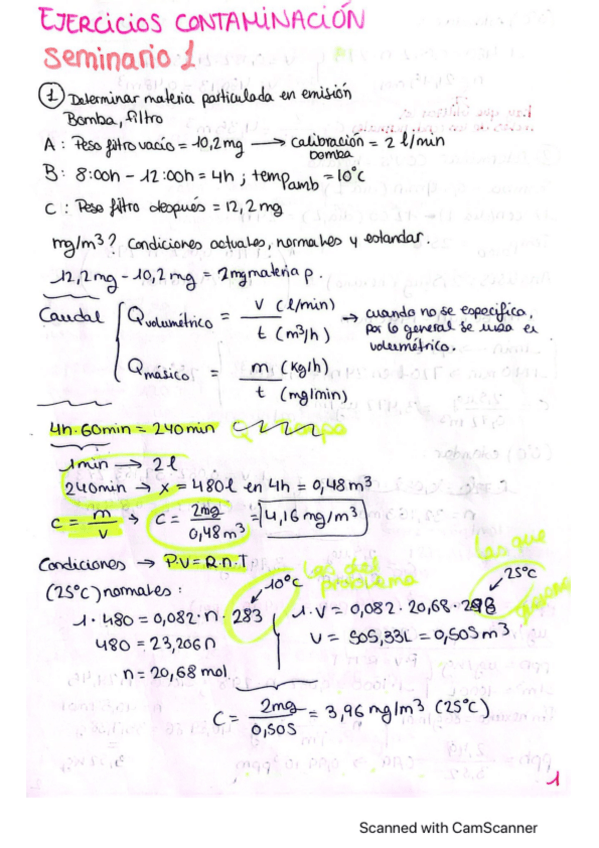 EJERCICIOS CONTAMINACIÓN
Seminario 1
① Determinar materia particulada en emisión
Bomba, filtro
A: Peso filtro vacío = 10,2 mg → calibración bomba = 2 l/min
B: 8:00h - 12:00h = 4h ; temp amb = 10°C
C: Peso filtro después = 12,2 mg
mg/m³? Condiciones actuales, normales y estandar.
12,2 mg - 10,2 mg = 2mg materia p.
Caudal { Qvolumétrico = V (l/min) / t (m³/h) → cuando no se especifica, por lo general se usa el volumétrico.
Qmásico = m (kg/h) / t (mg/min)
4h·60min = 240 min
1min → 2 l
240min → x = 480 l en 4h = 0,48 m³
C = m/V → C = 2mg/0,48 m³ = 4,16 mg/m³
Condiciones → P·V = R·n·T Las del problema las que
(25°C) normales: 10°C 25°C
1·480 = 0,082·n·283 1·V = 0,082·20,68·298
480 = 23,206n V = 505,33L = 0,505 m³
n = 20,68 mol
C = 2mg/0,505 = 3,96 mg/m³ (25°C)
1
Scanned with CamScanner